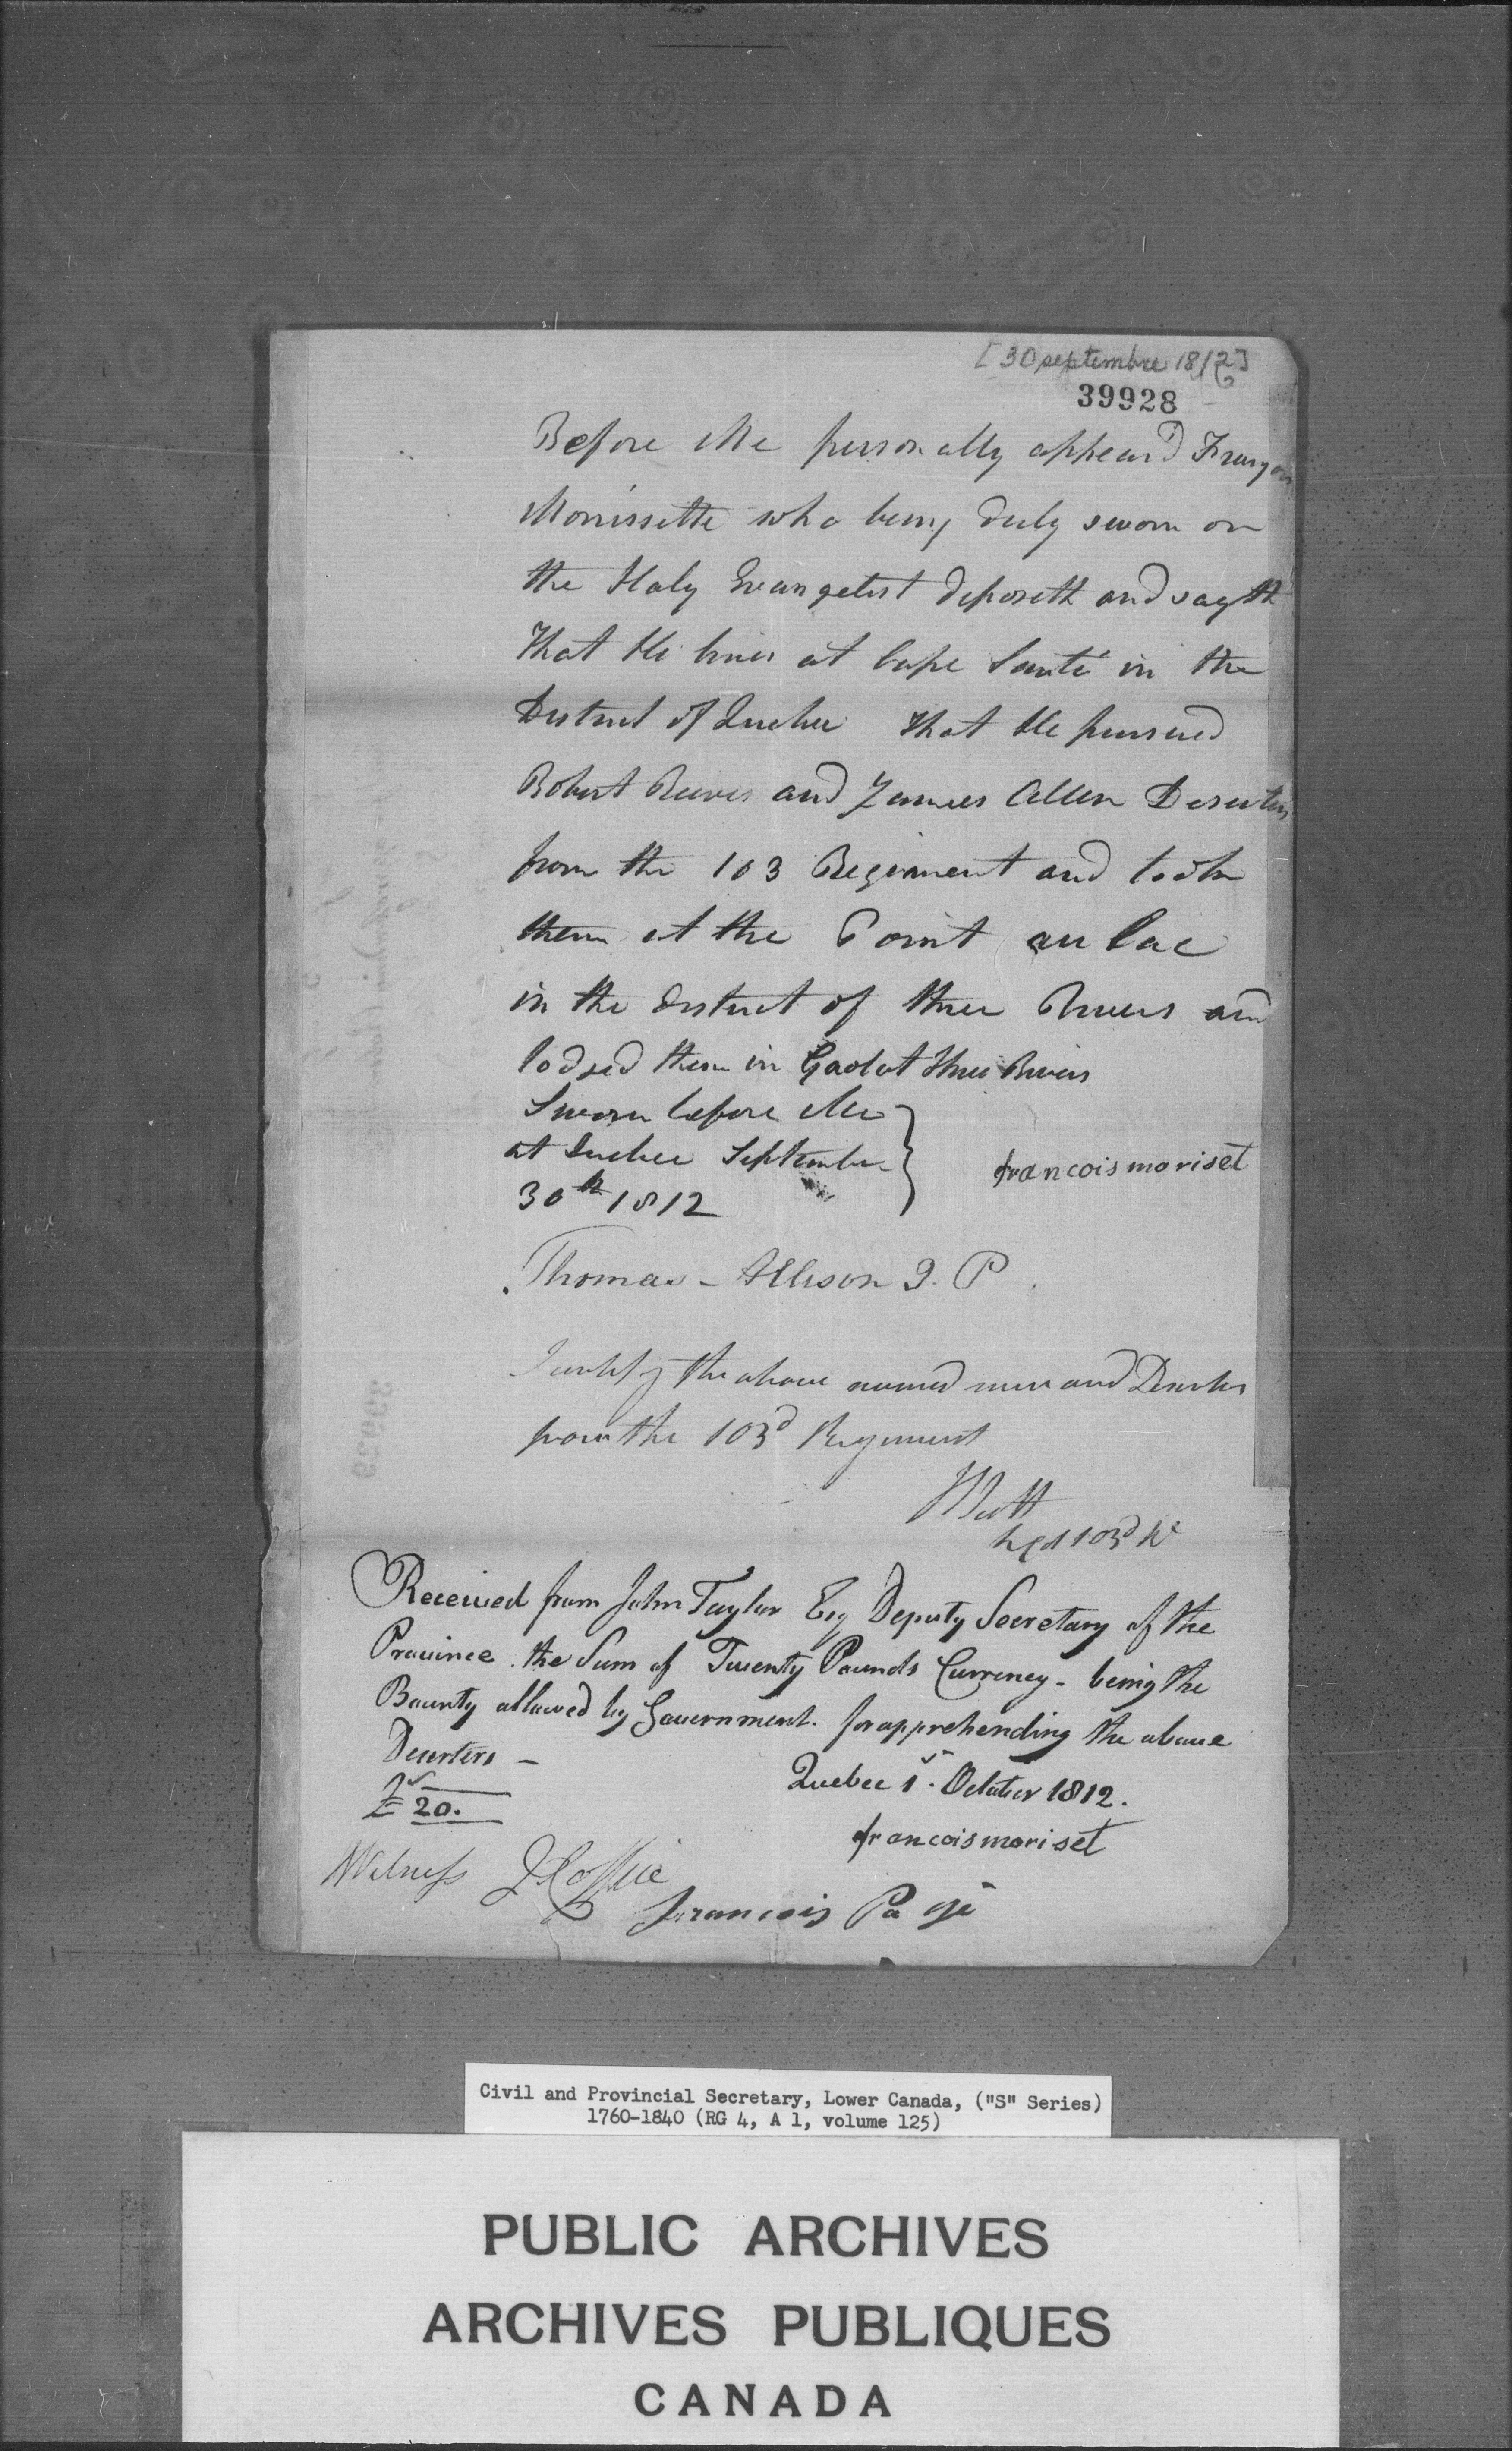 [30 septembre 1812]
39928
Before Me personally appear'd Françous
Morrissette who being duly sworn on
the Holy Evangelist deposeth and sayth
That He lives at Cape Santé in the
District of Quebec That He pursued
Robert Reeves and James Allen Deserters
from the 103 Regiment and took
them at the Point au Lac
in the district of three Rivers and
lodged them in Gaol at three Rivers
Sworn before Me
at Quebec September
30th 1812
francois moriset
Thomas Allison J. P.
I certify the above named men and Deserters
from the 103d Regiment
103d Rt
Received from John Taylor Esq Deputy Secretary of the
Province the Sum of Twenty Pounds Currency - being the
Bounty allowed by Government for apprehending the above
Deserters -
Quebec 1st October 1812.
£ 20.
francois moriset
Witness J Coffie
francois Pagé
Civil and Provincial Secretary, Lower Canada, ("S" Series)
1760-1840 (RG 4, A 1, volume 125)
PUBLIC ARCHIVES
ARCHIVES PUBLIQUES
CANADA